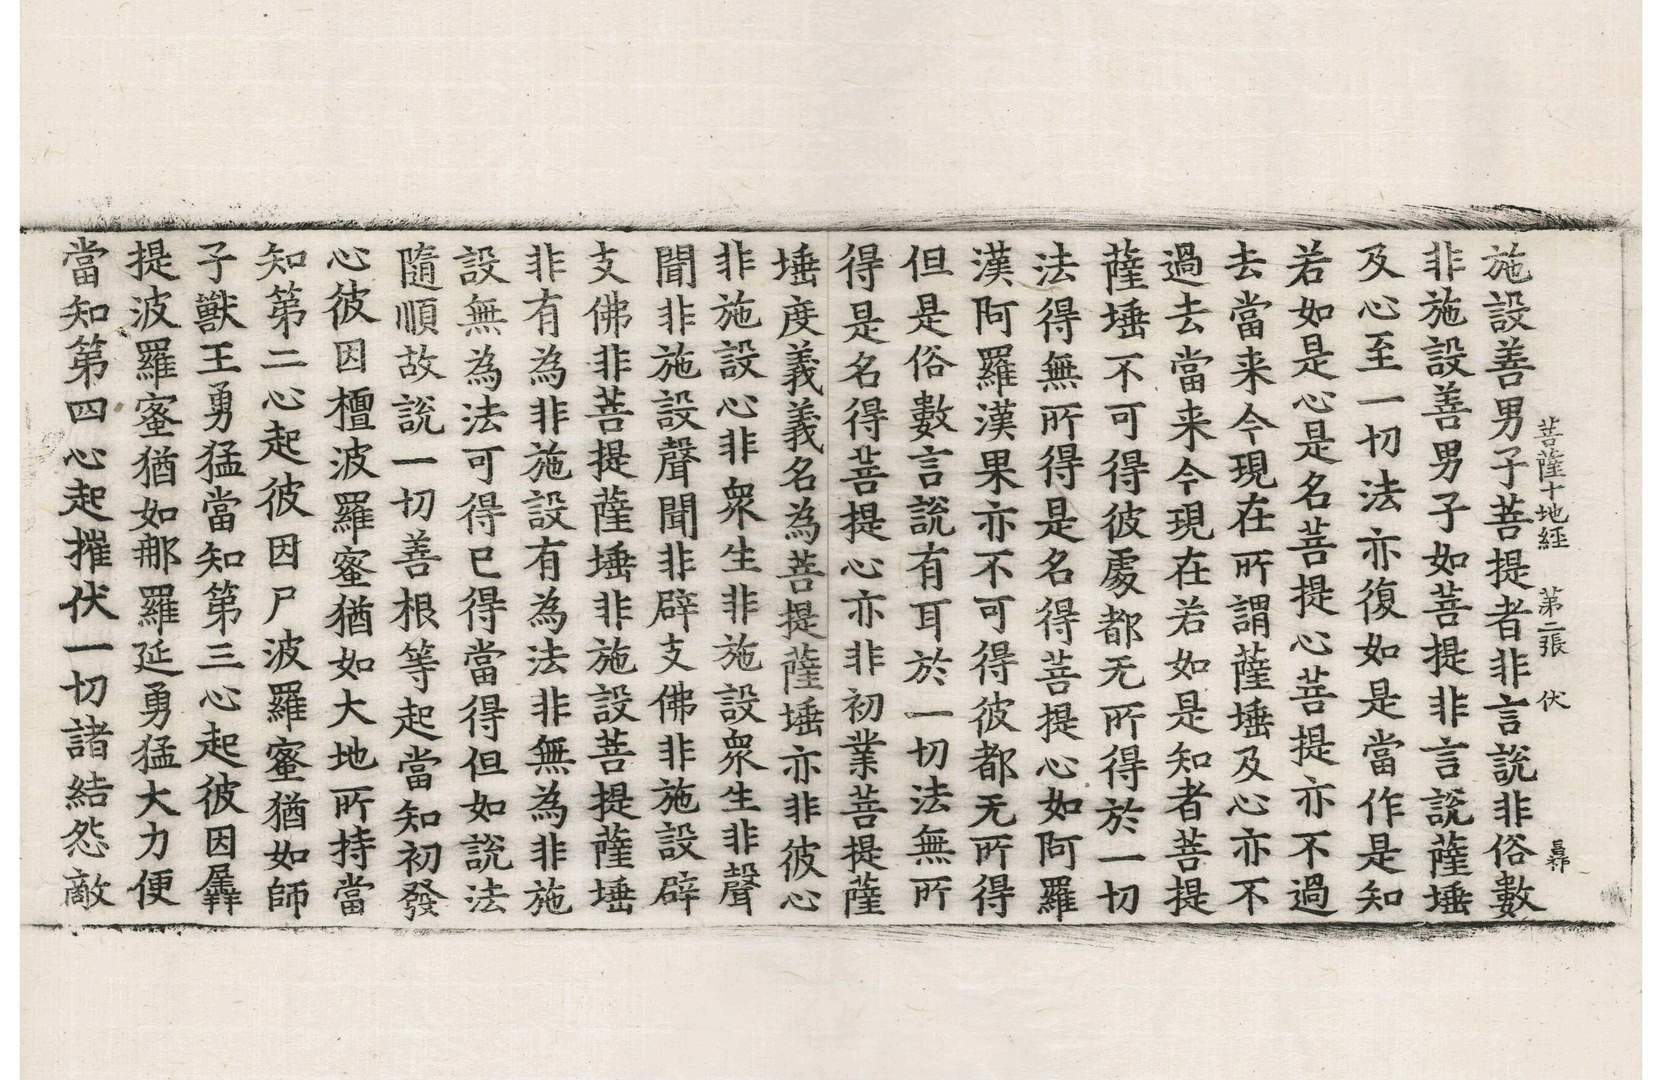 菩薩十地經　第二張　伏
施設善男子菩提者非言說非俗數
非施設善男子如菩提非言說薩埵
及心至一切法亦復如是當作是知
若如是心是名菩提心菩提亦不過
去當来今現在所謂薩埵及心亦不
過去當来今現在若如是知者菩提
薩埵不可得彼處都无所得於一切
法得無所得是名得菩提心如阿羅
漢阿羅漢果亦不可得彼都无所得
但是俗數言說有耳於一切法無所
得是名得菩提心亦非初業菩提薩
埵度義義名為菩提薩埵亦非彼心
非施設心非衆生非施設衆生非聲
聞非施設聲聞非辟支佛非施設辟
支佛非菩提薩埵非施設菩提薩埵
非有為非施設有為法非無為非施
設無為法可得已得當得但如說法
隨順故說一切善根等起當知初發
心彼因檀波羅蜜猶如大地所持當
知第二心起彼因尸波羅蜜猶如師
子獸王勇猛當知第三心起彼因羼
提波羅蜜猶如那羅延勇猛大力便
當知第四心起摧伏一切諸結怨敵